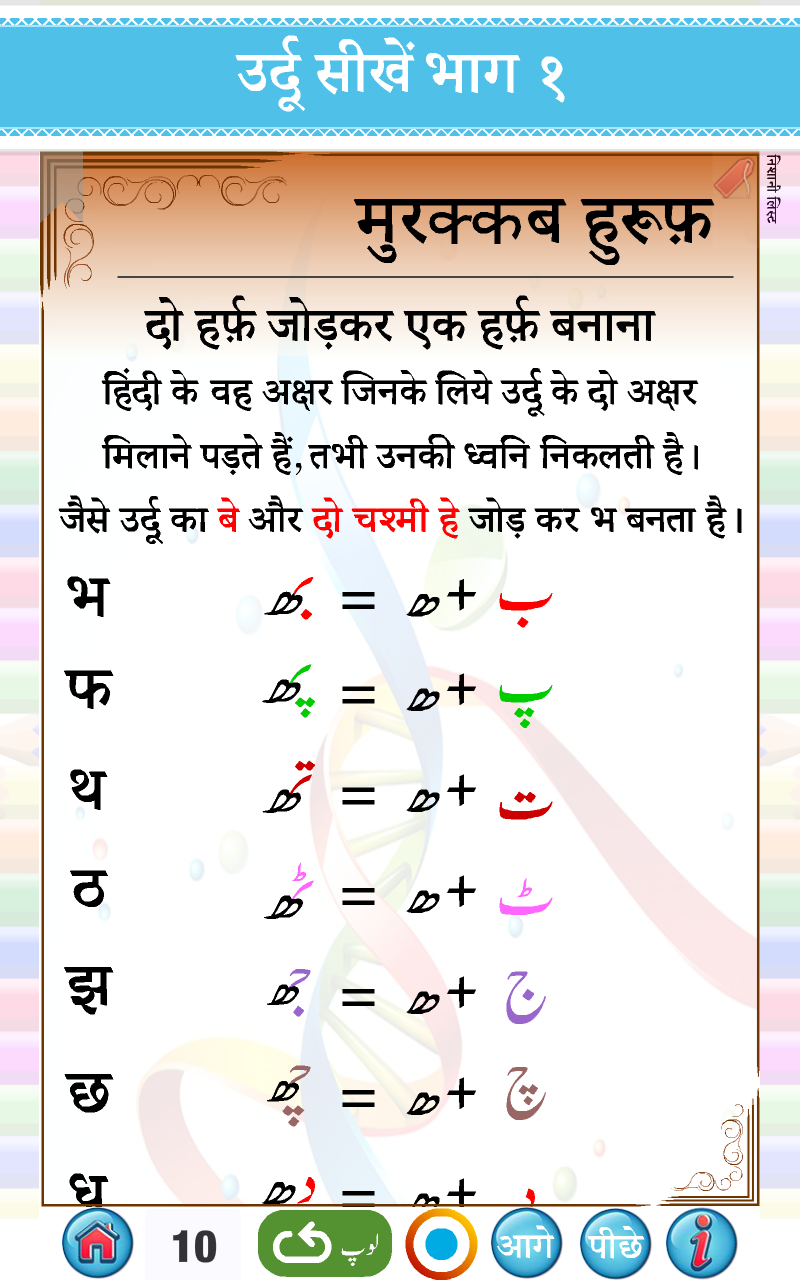 उर्दू सीखें भाग १
निशानी लिस्ट
मुरक्कब हुरूफ़
दो हर्फ़ जोड़कर एक हर्फ़ बनाना
हिंदी के वह अक्षर जिनके लिये उर्दू के दो अक्षर
मिलाने पड़ते हैं, तभी उनकी ध्वनि निकलती है।
जैसे उर्दू का बे और दो चश्मी हे जोड़ कर भ बनता है।
ب + ھ = بھ भ
پ + ھ = پھ फ
ت + ھ = تھ थ
ٹ + ھ = ٹھ ठ
ج + ھ = جھ झ
چ + ھ = چھ छ
د + ھ = دھ ध
10 لوپ आगे पीछे i